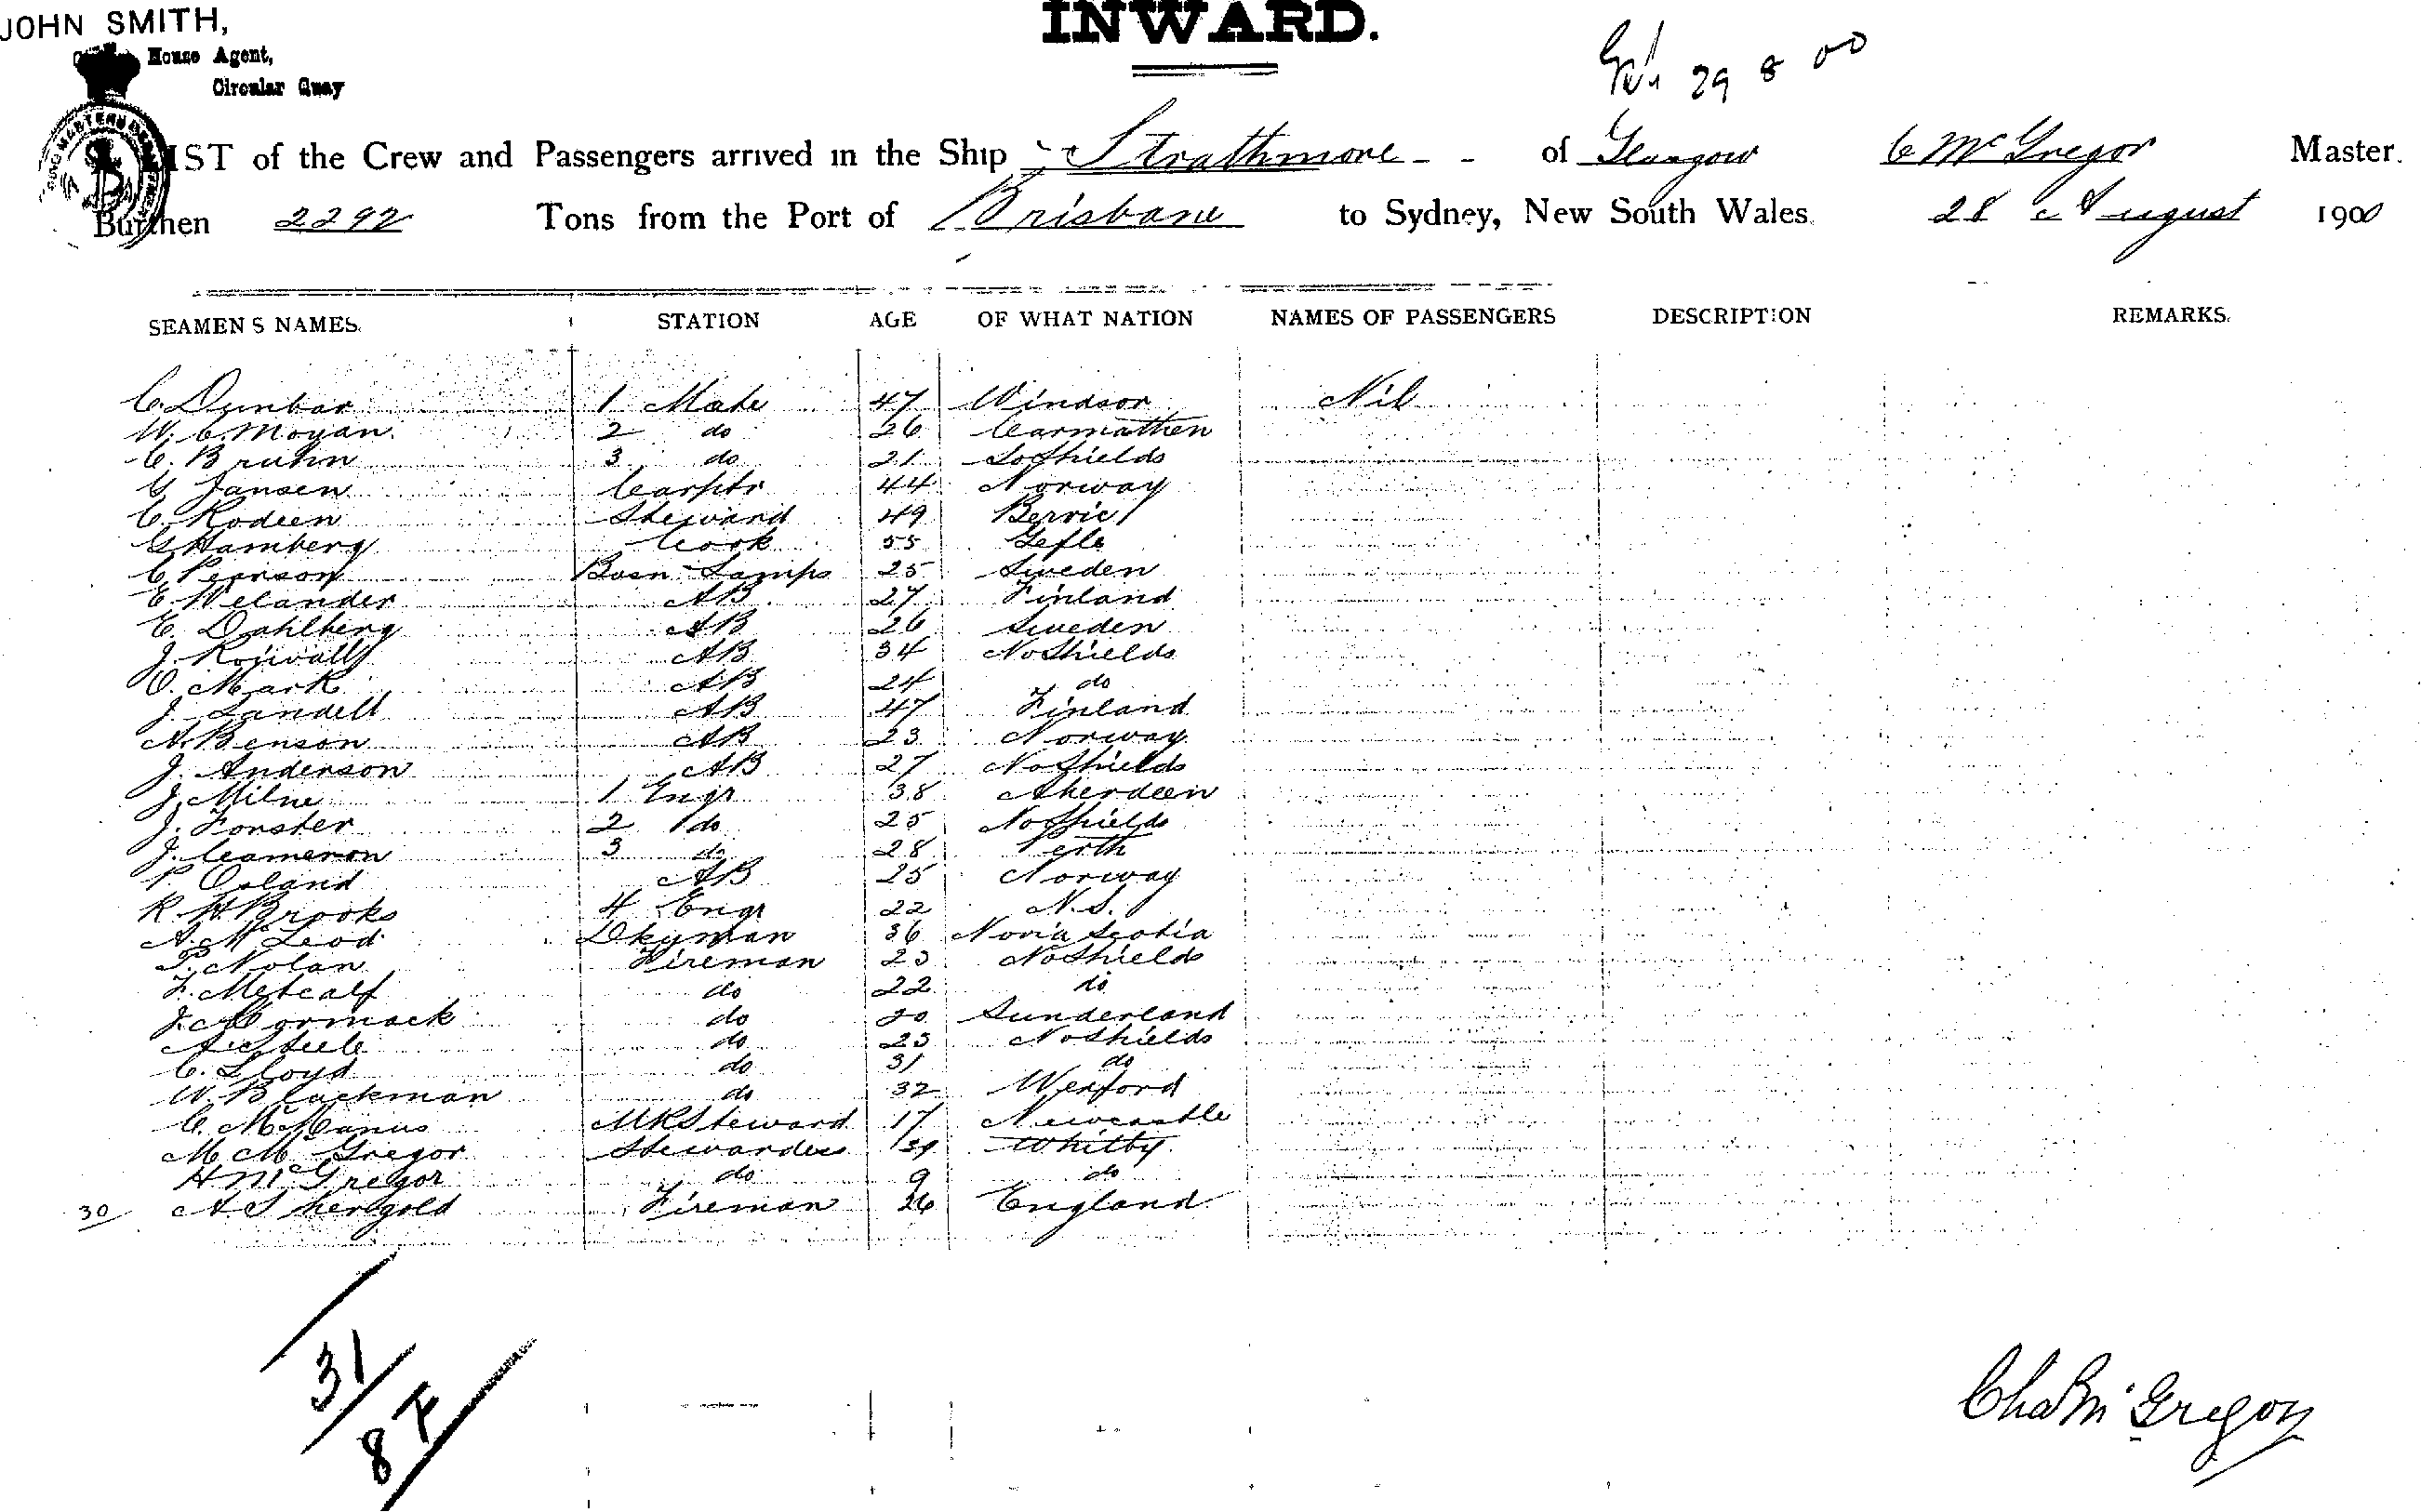 JOHN SMITH,
House Agent,
Circular Quay
INWARD.
29 8 00
LIST of the Crew and Passengers arrived in the Ship Strathmore of Glasgow C McGregor Master.
Burthen 2292 Tons from the Port of Brisbane to Sydney, New South Wales. 28 August 1900
SEAMEN'S NAMES. STATION AGE OF WHAT NATION NAMES OF PASSENGERS DESCRIPTION REMARKS.
C. Dunbar 1 Mate 47 Windsor Nil
W. C. Moyan 2 do 26 Carmathen
C. Bruhn 3 do 21 So Shields
G Jansen Carptr 44 Norway
C. Rodeen Steward 49 Bervie
G Hamberg Cook 55 Gefle
C Pearson Bosn Lamps 25 Sweden
E. Welander AB 27 Finland
E. Dahlberg AB 26 Sweden
J. AB 34 No Shields
O. Mark AB 24 do
J. Landell AB 47 Finland
A. Benson AB 23 Norway
J. Anderson AB 27 No Shields
J. Milne 1 Engr 38 Aberdeen
J. Forster 2 do 25 No Shields
J. Cameron 3 do 28 Perth
P. Osland AB 25 Norway
R. H Brooks 4 Engr 22 N.S.
A. McLeod Dkyman 36 Novia Scotia
P. Nolan Fireman 23 No Shields
F. Metcalf do 22 do
J. McCormack do 20 Sunderland
A. Steele do 23 No Shields
C. Lloyd do 31 do
W. Blackman do 32 Wexford
C. McManus MRSteward 17 Newcastle
M McGregor Stewardess 39 Whitby
H McGregor do 9 do
30 A Shergold Fireman 26 England
31
87
Chas McGregor